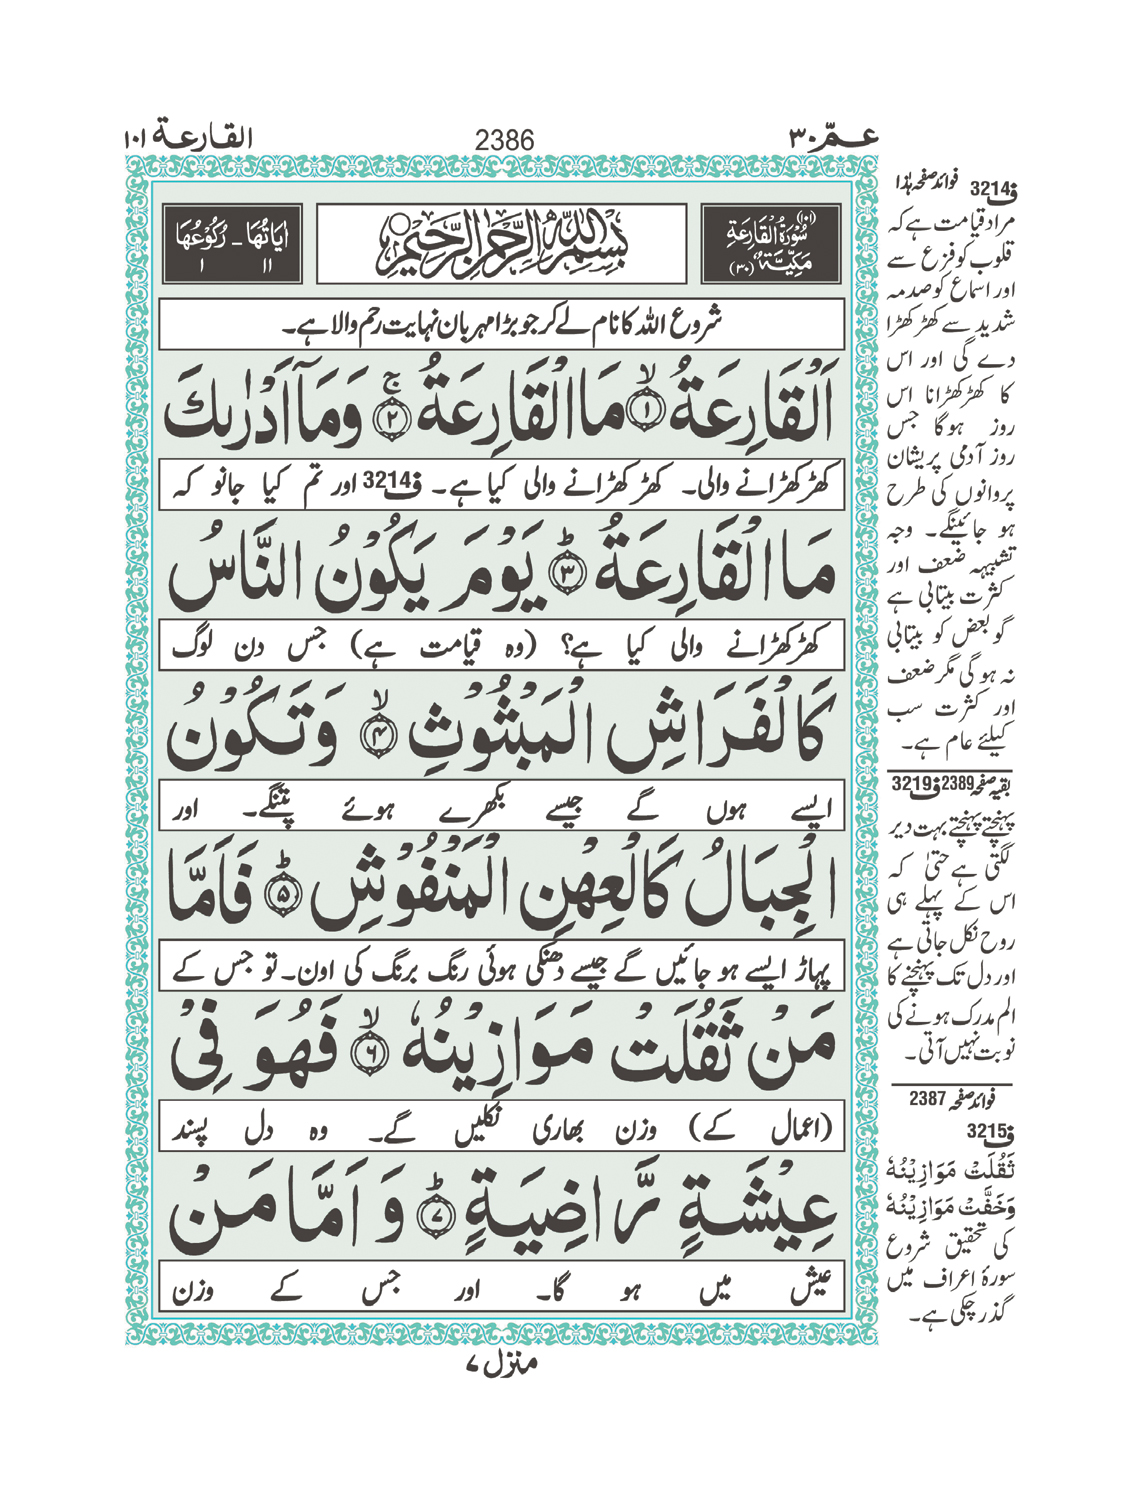 عـمّ ٣٠
2386
القارعة ١٠١
(١٠١) سُوْرَةُ الْقَارِعَةِ مَكِّيَّةٌ (٣٠)
بِسْمِ اللّٰهِ الرَّحْمٰنِ الرَّحِيْمِ
اٰيَاتُهَا ١١ - رُكُوْعُهَا ١
شروع اللہ کا نام لے کر جو بڑا مہربان نہایت رحم والا ہے۔
اَلْقَارِعَةُ ۙ﴿١﴾ مَا الْقَارِعَةُ ۚ﴿٢﴾ وَمَاۤ اَدْرٰىكَ
کھڑکھڑانے والی۔ کھڑکھڑانے والی کیا ہے۔ ف3214 اور تم کیا جانو کہ
مَا الْقَارِعَةُ ؕ﴿٣﴾ يَوْمَ يَكُوْنُ النَّاسُ
کھڑکھڑانے والی کیا ہے؟ (وہ قیامت ہے) جس دن لوگ
كَالْفَرَاشِ الْمَبْثُوْثِ ۙ﴿٤﴾ وَتَكُوْنُ
ایسے ہوں گے جیسے بکھرے ہوئے پتنگے۔ اور
الْجِبَالُ كَالْعِهْنِ الْمَنْفُوْشِ ؕ﴿٥﴾ فَاَمَّا
پہاڑ ایسے ہو جائیں گے جیسے دھنکی ہوئی رنگ برنگ کی اون۔ تو جس کے
مَنْ ثَقُلَتْ مَوَازِيْنُهٗ ۙ﴿٦﴾ فَهُوَ فِيْ
(اعمال کے) وزن بھاری نکلیں گے۔ وہ دل پسند
عِيْشَةٍ رَّاضِيَةٍ ؕ﴿٧﴾ وَ اَمَّا مَنْ
عیش میں ہو گا۔ اور جس کے وزن
منزل ٧
ف3214 فوائد صفحہ ہٰذا
مراد قیامت ہے کہ
قلوب کو فزع سے
اور اسماع کو صدمہ
شدید سے کھڑکھڑا
دے گی اور اس
کا کھڑکھڑانا اس
روز ہوگا جس
روز آدمی پریشان
پروانوں کی طرح
ہو جائینگے۔ وجہ
تشبیہہ ضعف اور
کثرت بیتابی ہے
گو بعض کو بیتابی
نہ ہو گی مگر ضعف
اور کثرت سب
کیلئے عام ہے۔
بقیہ صفحہ 2389 ف3219
پہنچتے پہنچتے بہت دیر
لگتی ہے حتیٰ کہ
اس کے پہلے ہی
روح نکل جاتی ہے
اور دل تک پہنچنے کا
الم مدرک ہونے کی
نوبت نہیں آتی۔
فوائد صفحہ 2387
ف3215
ثَقُلَتْ مَوَازِيْنُهٗ
وَخَفَّتْ مَوَازِيْنُهٗ
کی تحقیق شروع
سورۂ اعراف میں
گذر چکی ہے۔